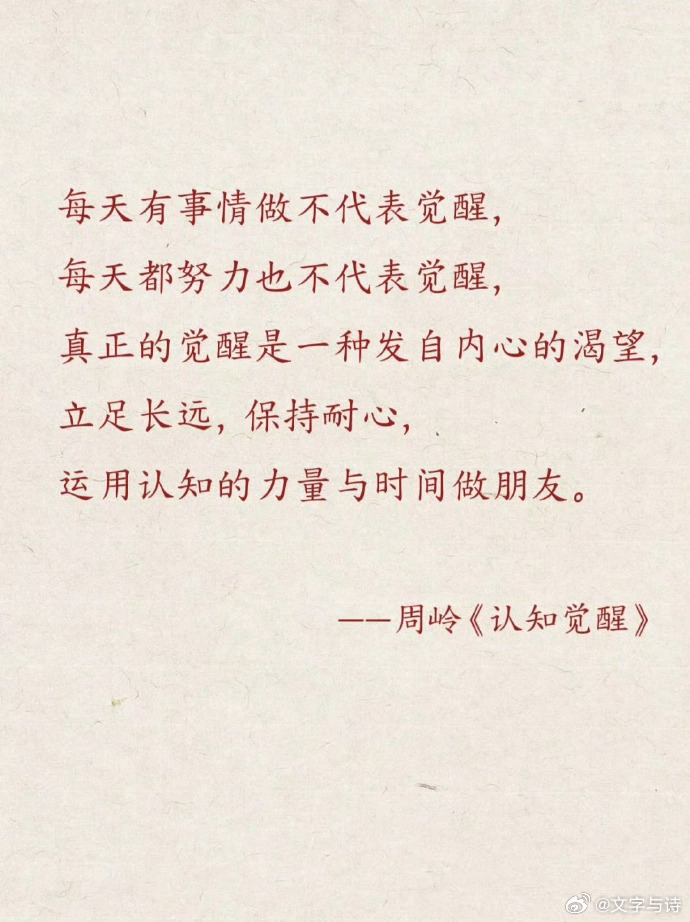 每天有事情做不代表觉醒,
每天都努力也不代表觉醒,
真正的觉醒是一种发自内心的渴望,
立足长远, 保持耐心,
运用认知的力量与时间做朋友。
——周岭《认知觉醒》
@文字与诗